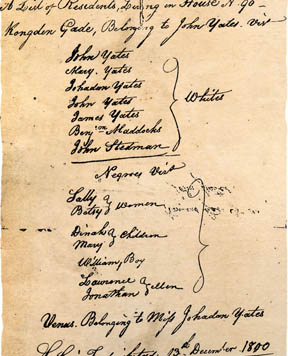 A List of Residents, Living in House N. 90
Kongden Gade, Belonging to John Yates. Vist
John Yates
Mary. Yates
Johadon Yates
John Yates
James Yates
Benj.on Maddocks
John Stedman
Whites
Negroes Vist
Sally &
Betsy
Women
Dinah &
Mary
Children
William, Boy
Lawrence &
Jonathan
Men
Venus. Belonging to Miss Johadon Yates
13th Decem'ber 1800